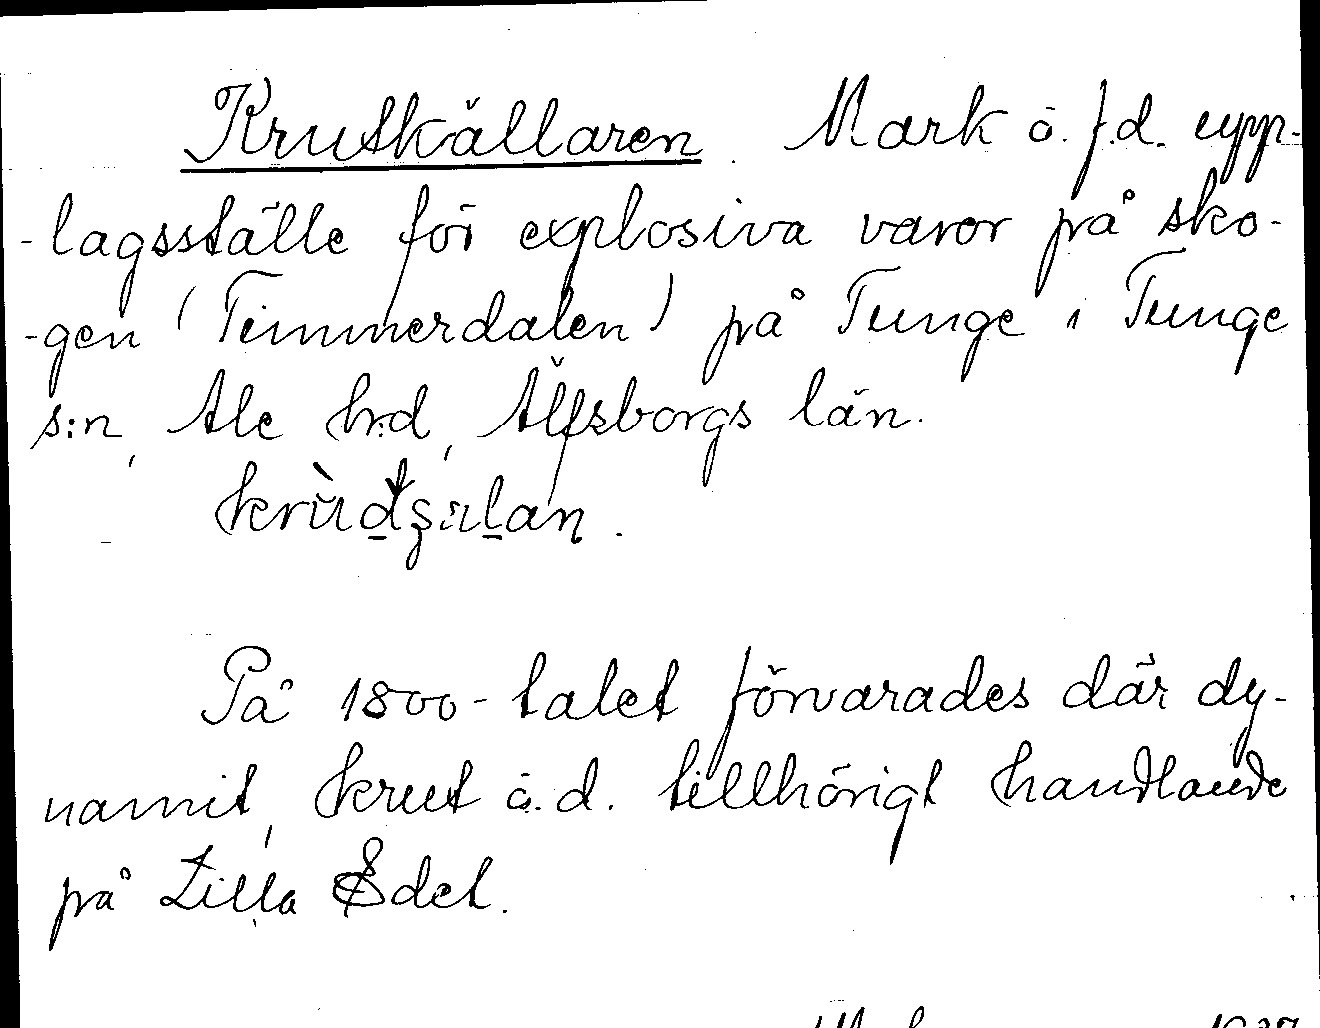 Krutkällaren. Mark o. f.d. upp-
-lagsställe för explosiva varor på sko-
-gen (Timmerdalen) på Tunge i Tunge
s:n, Ale hrd, Älfsborgs län.

På 1800-talet förvarades där dy-
namit, krut o.d. tillhörigt handlande
på Lilla Edet.